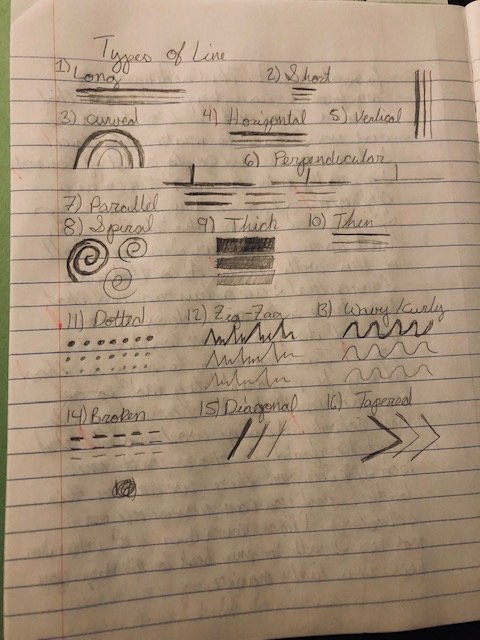 Types of Line
1) Long
2) Short
3) curved
4) Horizontal
5) Vertical
6) Perpendicular
7) Parallel
8) Spiral
9) Thick
10) Thin
11) Dotted
12) Zig-Zag
13) Wavy/Curly
14) Broken
15) Diagonal
16) Tapered